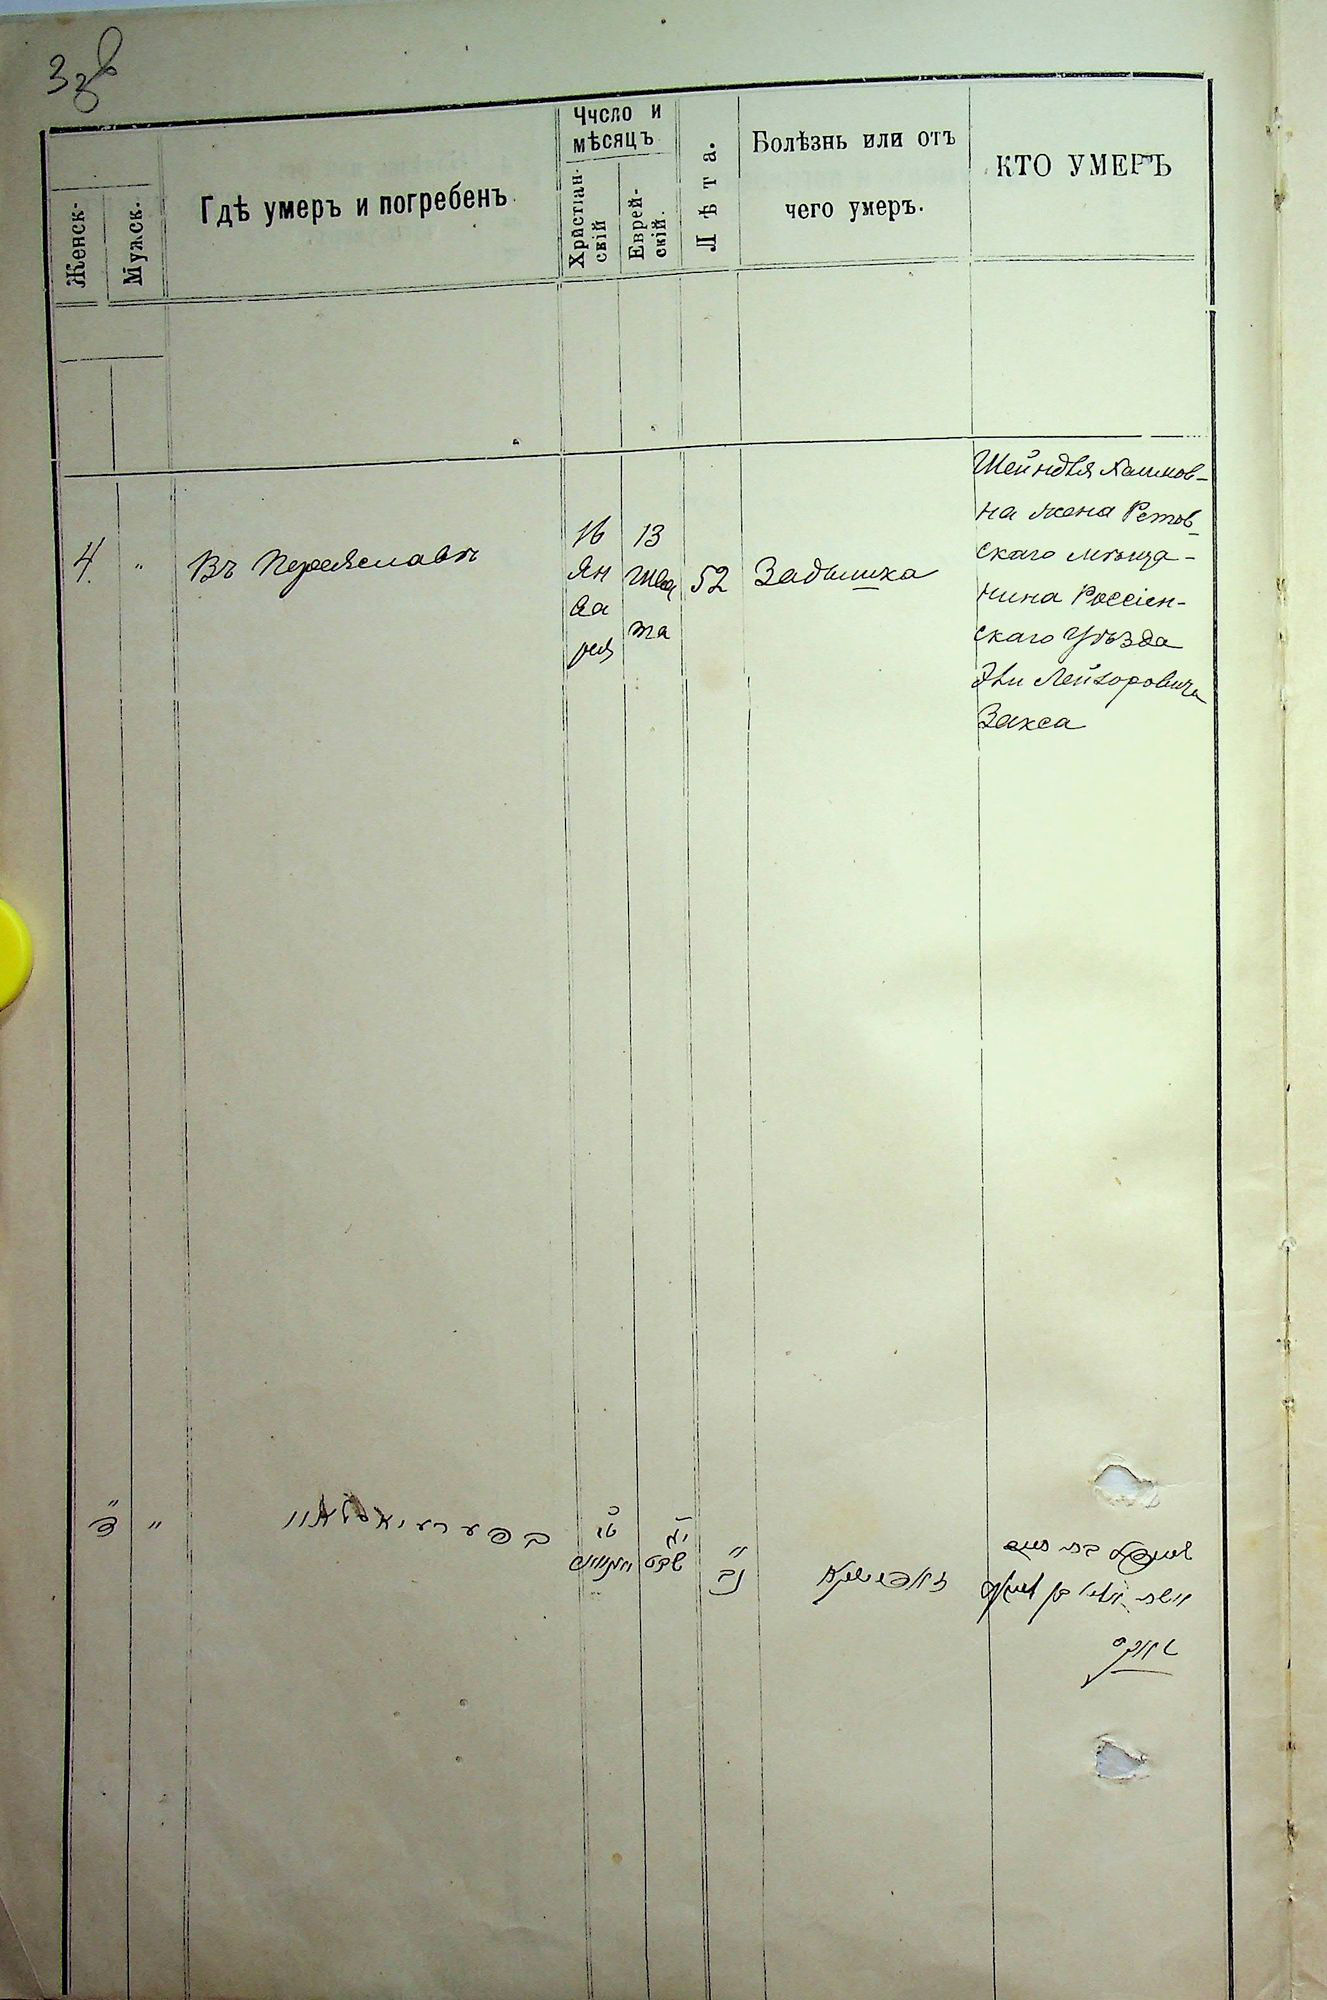 Женск-
Мужск.
Гдѣ умеръ и погребенъ.
Число и
мѣсяцъ
Христіан-
скій
Еврей-
скій.
Лѣта.
Болѣзнь или отъ
чего умеръ.
КТО УМЕРЪ
4.
"
Въ Переяславѣ
16
Ян
ва
ря
13
Шва
та
52
Задышка
Шейндля Хаимов-
на жена Ретов
скаго мѣща-
нина Россіен-
скаго Уѣзда
Эли Лейзоровича
Закса
"
שבט
נב
זאדישקא